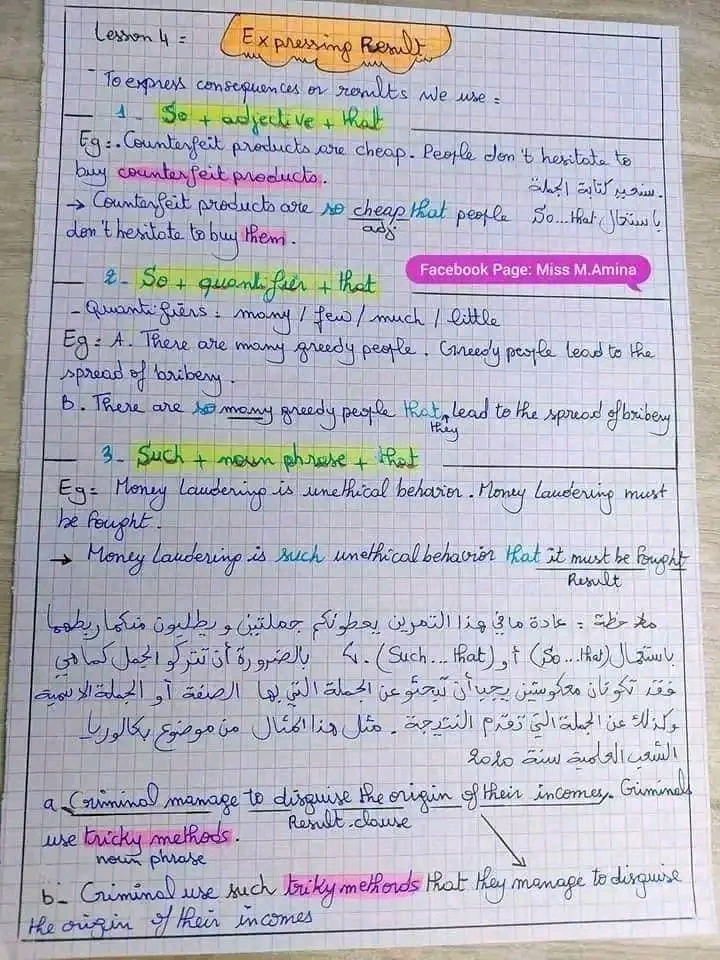 Lesson 4 =
Expressing Result
- To express consequences or results we use =
1 - So + adjective + that
Eg: . Counterfeit products are cheap. People don't hesitate to
buy counterfeit products.
سنعيد كتابة الجملة
→ Counterfeit products are so cheap that people
باستعمال So...that
adj
don't hesitate to buy them.
Facebook Page: Miss M.Amina
2 - So + quantifier + that
- Quantifiers : many / few / much / little
Eg = A. There are many greedy people. Greedy people lead to the
spread of bribery.
B. There are so many greedy people that lead to the spread of bribery
they
3 - Such + noun phrase + that
Eg = Money Laudering is unethical behavior. Money Laudering must
be fought.
→ Money Laudering is such unethical behavior that it must be fought
Result
ملاحظة : عادة ما في هذا التمرين يعطونكم جملتين و يطلبون منكم ربطهما
باستعمال (So...that) أو (Such...that). لا بالضرورة أن تتركو الجمل كما هي
فقد تكونان معكوستين يجب أن تبحثو عن الجملة التي بها الصفة أو الجملة الاسمية
وكذلك عن الجملة التي تقدم النتيجة. مثل هذا المثال من موضوع بكالوريا
الشعب العلمية سنة 2020
a. Criminal manage to disguise the origin of their incomes. Criminals
Result clause
use tricky methods.
noun phrase
b - Criminal use such triky methords that they manage to disguise
the origin of their incomes